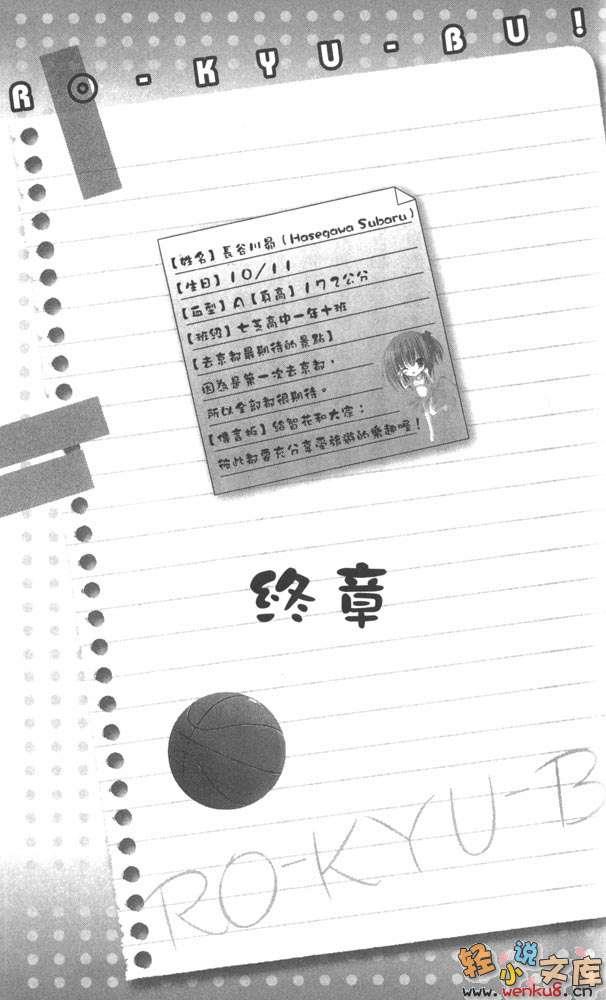 RO-KYU-BU!
【姓名】長谷川昴（Hasegawa Subaru）
【生日】10/11
【血型】A【身高】172公分
【班級】七芝高中一年十班
【去京都最期待的景點】
因為是第一次去京都，
所以全部都很期待。
【備言板】給智花和大家：
彼此都要充分享受旅遊的樂趣喔！
終章
RO-KYU-B
轻小说文库
www.wenku8.cn